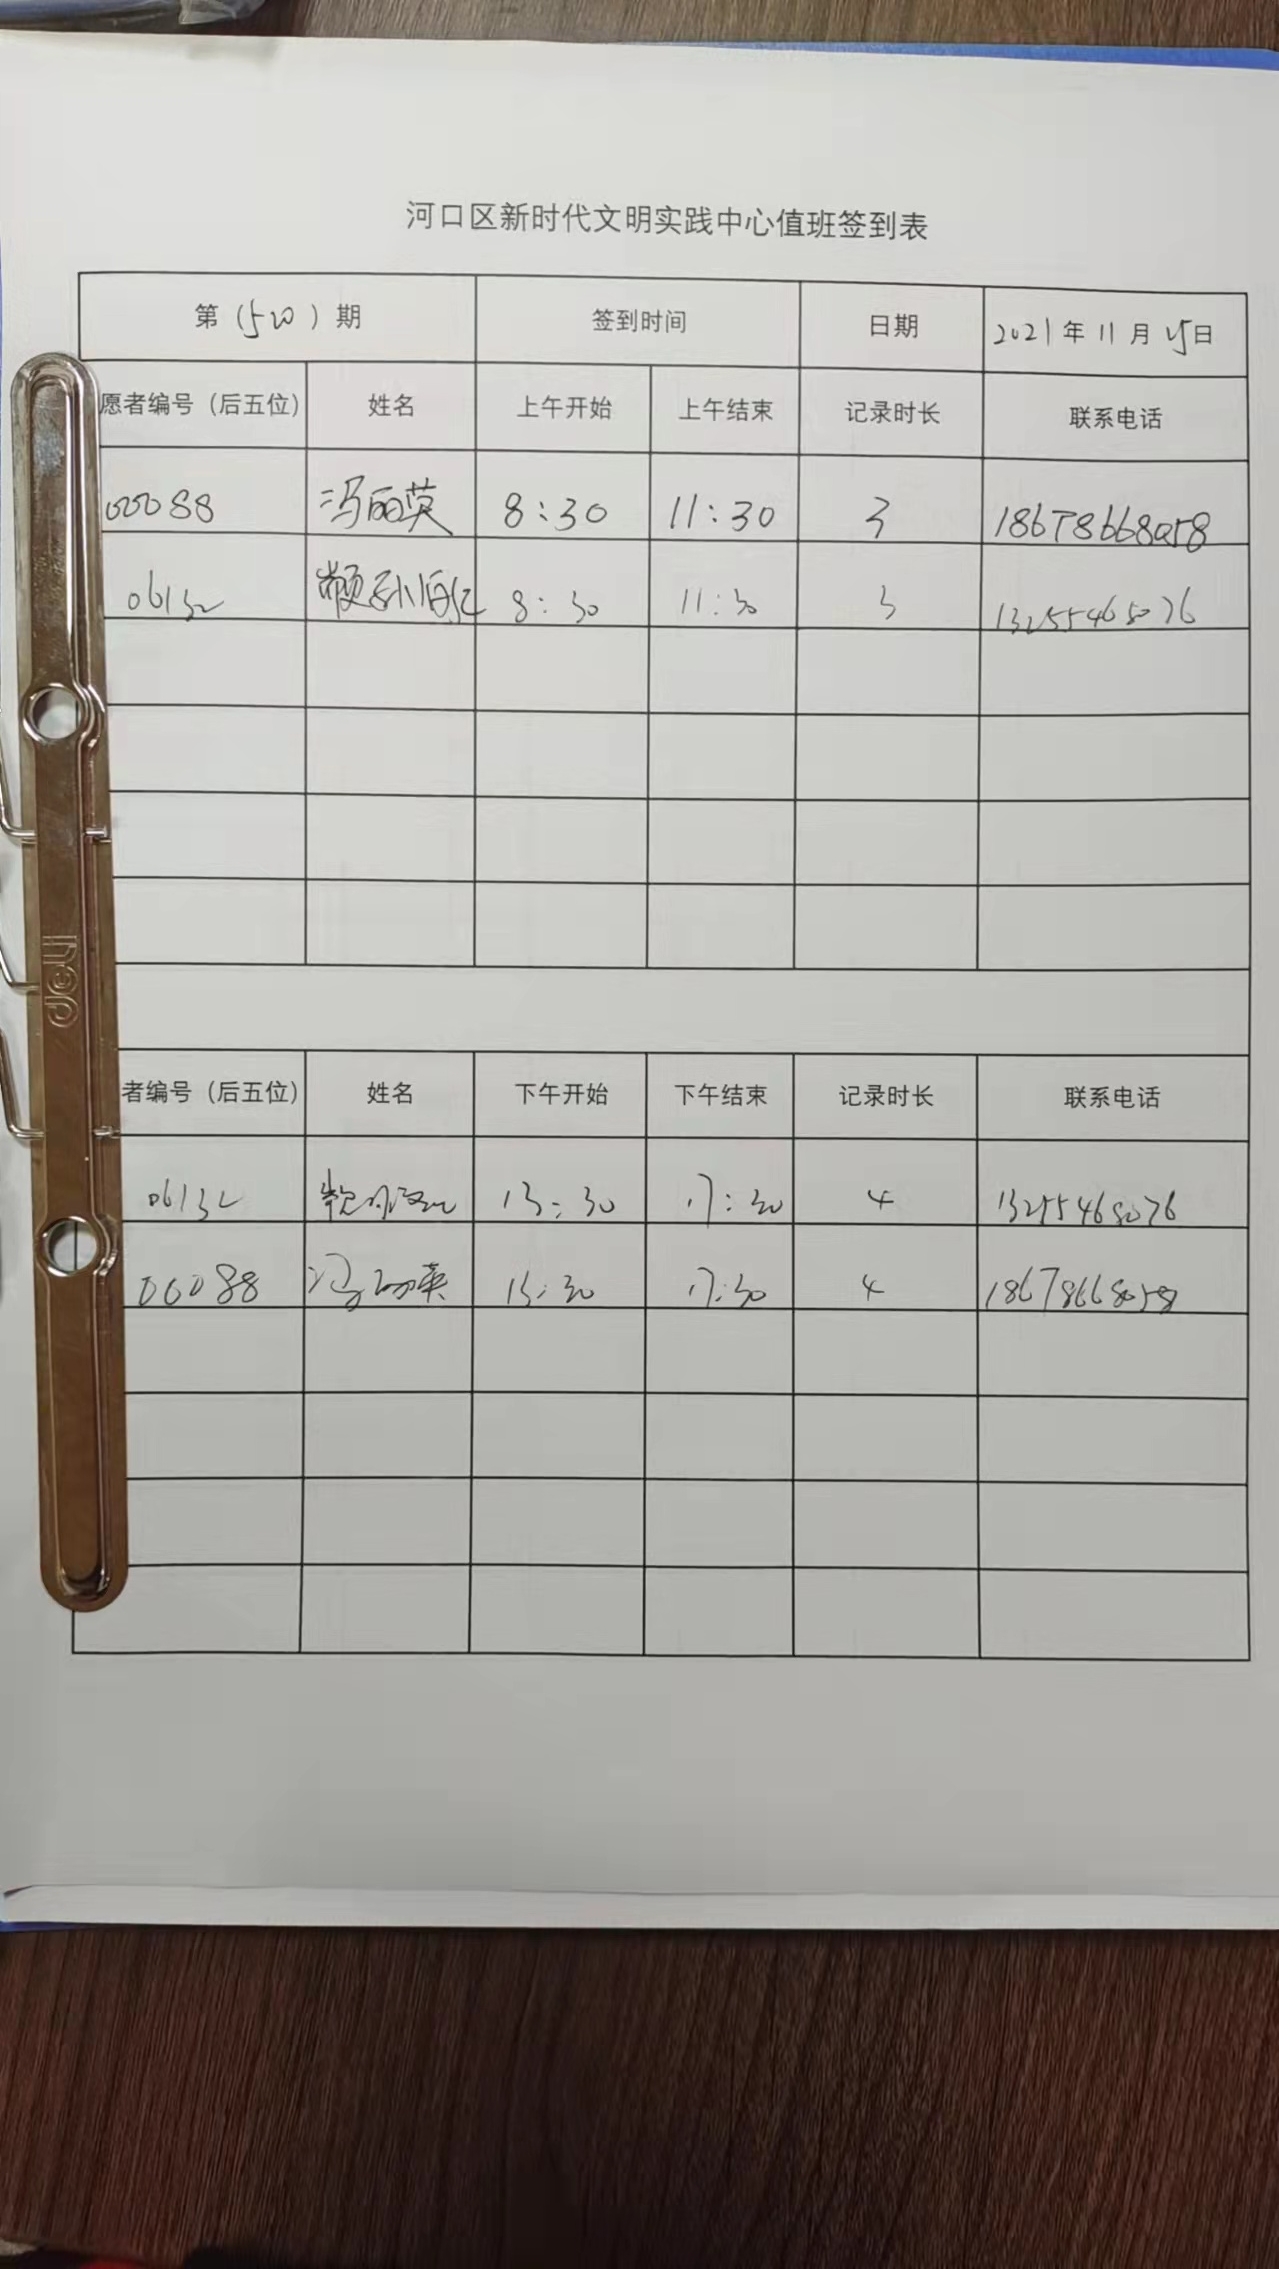 河口区新时代文明实践中心值班签到表
第（520）期 签到时间 日期 2021年11月15日
愿者编号（后五位） 姓名 上午开始 上午结束 记录时长 联系电话
00088 冯丽英 8:30 11:30 3 18678668058
06132 8:30 11:30 3 13255465076
者编号（后五位） 姓名 下午开始 下午结束 记录时长 联系电话
06132 13:30 17:30 4 13255465076
00088 冯丽英 13:30 17:30 4 18678668058